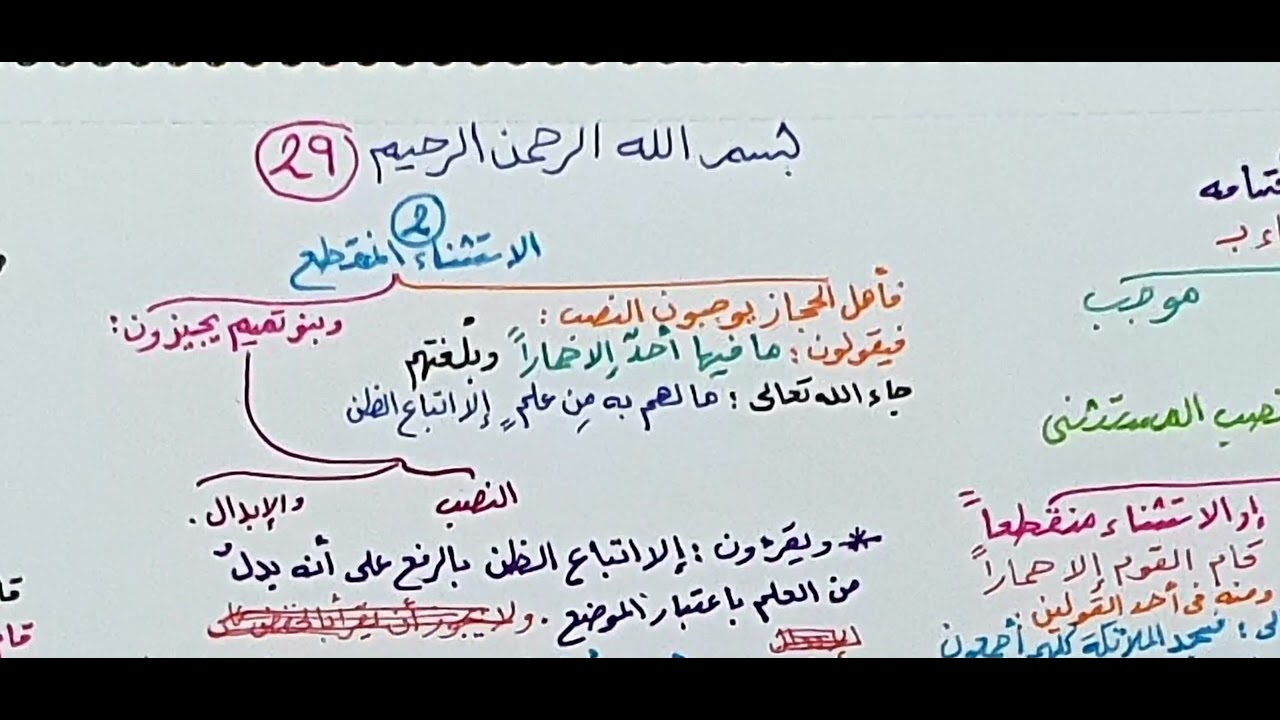 بسم الله الرحمن الرحيم 29
2
الاستثناء المنقطع
فأهل الحجاز يوجبون النصب :
فيقولون : ما فيها أحدٌ إلا حماراً وبلغتهم
جاء الله تعالى : ما لهم به مِن علمٍ إلا اتباع الظن
وبنو تميم يجيزون :
النصب
والإبدال .
* ويقرؤون : إلا اتباع الظن بالرفع على أنه بدلٌ
من العلم باعتبار الموضع . ولا يجوز أن يقرأ بالخفض على
موجَب
نصب المستثنى
إذ الاستثناء منقطعاً
قام القوم إلا حماراً
ومنه في أحد القولين :
فسجد الملائكة كلهم أجمعون